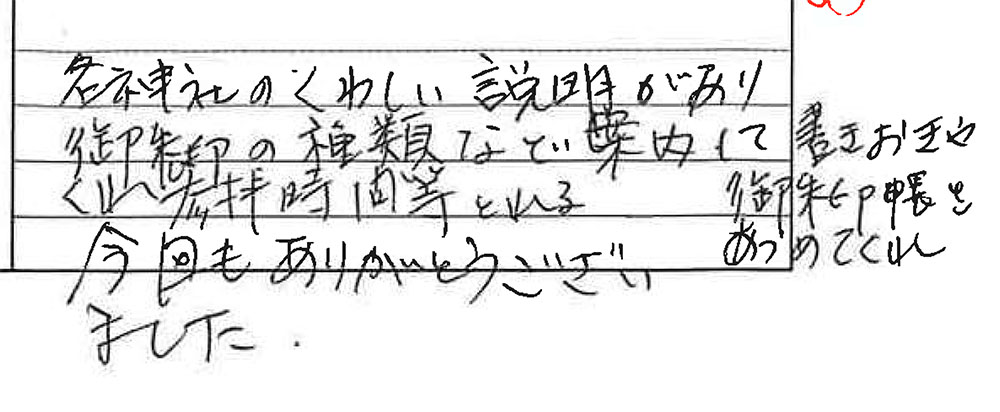 各神社のくわしい説明があり
御朱印の種類など案内して
くれ参拝時間等とれる
今回もありがとうござい
ました.
書きおきや
御朱印帳を
あつめてくれ